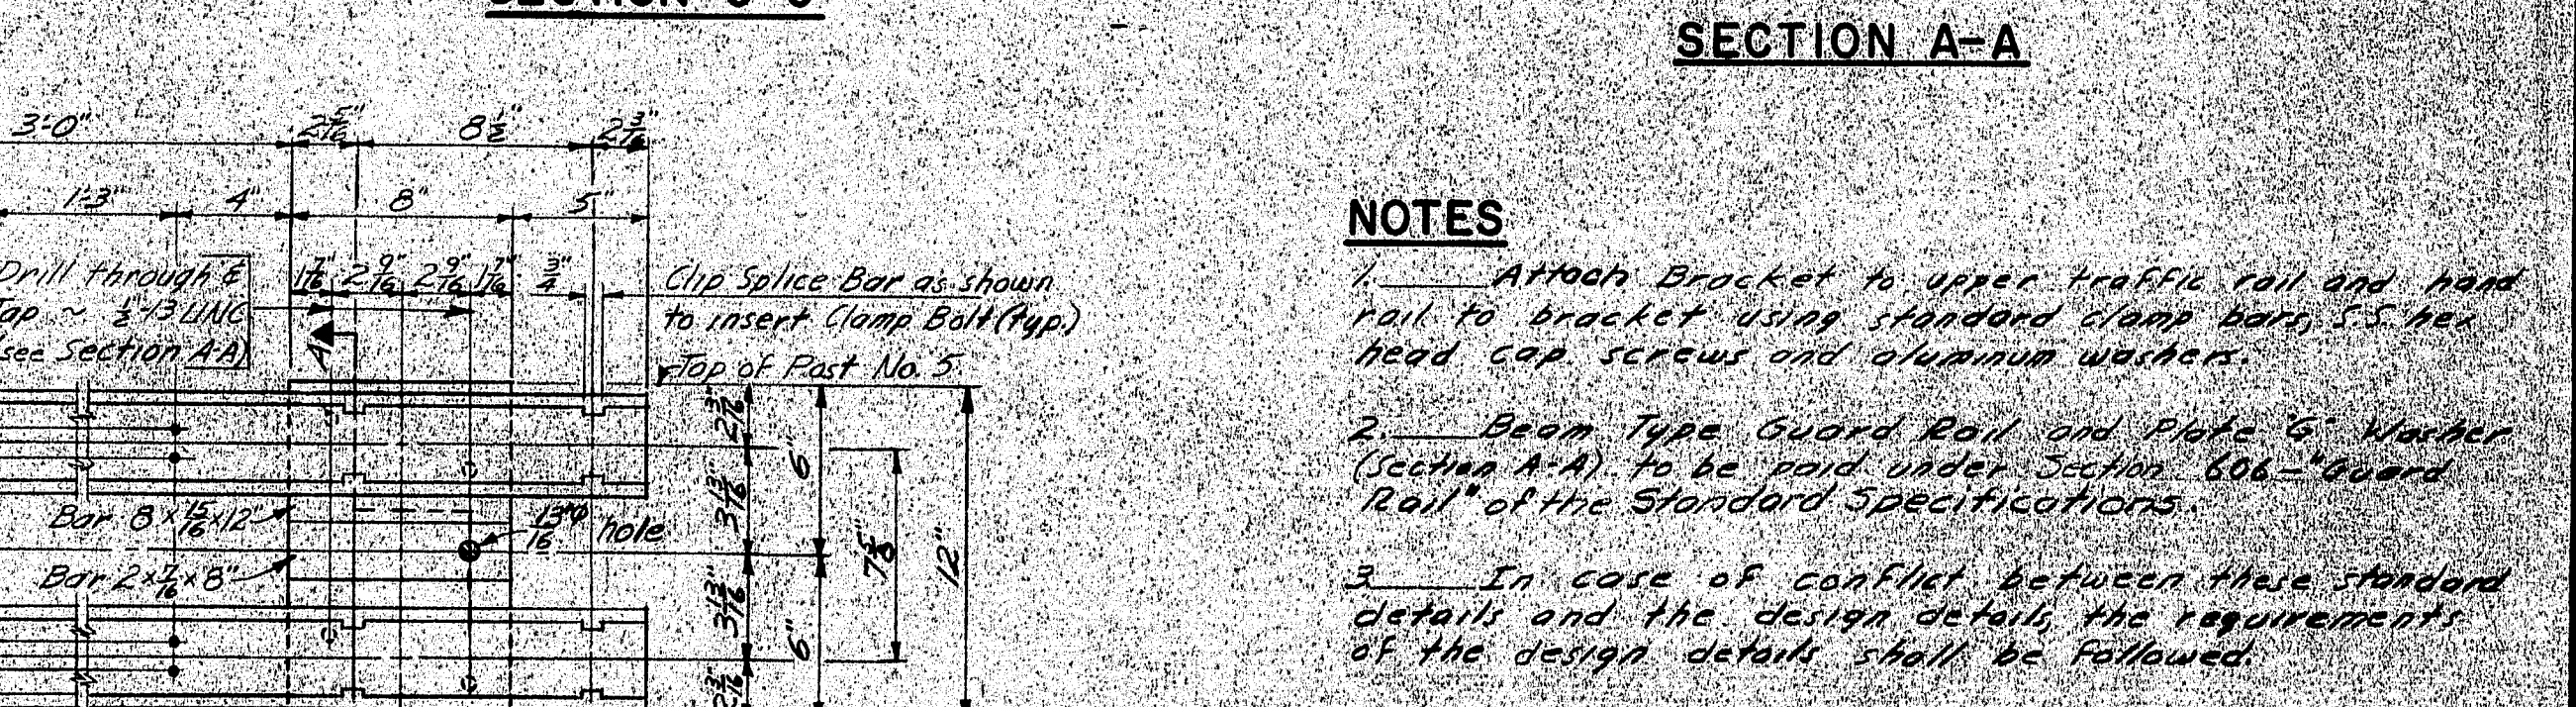 SECTION A-A
3'-0" 2 5/16" 8 1/2" 2 3/16"
1'-3" 4" 8" 5"
Drill through &
Tap ~ 1/2-13 UNC
(see Section A-A)
1 7/16" 2 9/16" 2 9/16" 1 7/16" 3/4"
Clip Splice Bar as shown
to insert Clamp Bolt (typ.)
A
Top of Post No. 5
2 3/16"
3 13/16"
6"
7 5/8"
12"
Bar 8 x 15/16 x 12"
13/16"ø hole
Bar 2 x 7/16 x 8"
3 13/16"
6"
2 3/16"
NOTES
1. Attach Bracket to upper traffic rail and hand
rail to bracket using standard clamp bars, S.S. hex
head cap screws and aluminum washers.
2. Beam Type Guard Rail and Plate "G" Washer
(Section A-A) to be paid under Section 606-"Guard
Rail" of the Standard Specifications.
3. In case of conflict between these standard
details and the design details, the requirements
of the design details shall be followed.